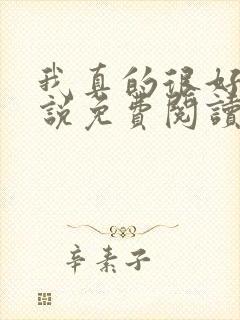 我真的很好
說免費閱讀
辛素子